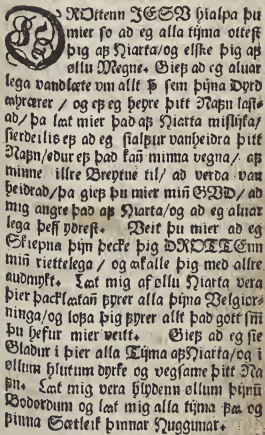 DROttenn JESV hialpa þu
mier so ad eg alla tijma ottest
þig af Hiarta/og elske þig af
øllu Megne. Gief ad eg aluar
lega vandlæte vm allt þ sem þijna Dyrd
ahrærer / og ef eg heyre þitt Nafn last-
ad/ þa læt mier það af Hiarta mislijka/
sierdeilis ef ad eg sialfur vanheidra þitt
Nafn/edur ef það kañ minna vegna/ af
minne illre Breytne til/ ad verda van
heidrad/ þa gief þu mier miñ GVD/ ad
mig angre það af Hiarta/og ad eg aluar
lega þess ydrest. Veit þu mier ad eg
Skiepna þijn þecke þig DROTTEnn
miñ riettelega / og akalle þig med allre
audmykt. Læt mig af øllu Hiarta vera
þier þacklatañ fyrer alla þijna Velgior-
ninga/og lofa þig fyrer allt það gott sm̃
þu hefur mier veitt. Gief ad eg sie
Gladur i þier alla Tijma af Hiarta/og i
øllum hlutum dyrke og vegsame þitt Na
fn. Læt mig vera hlydenn øllum þijnũ
Bodordum og læt mig alla tijma fæ og
finna Sætleik þinnar Huggunar.